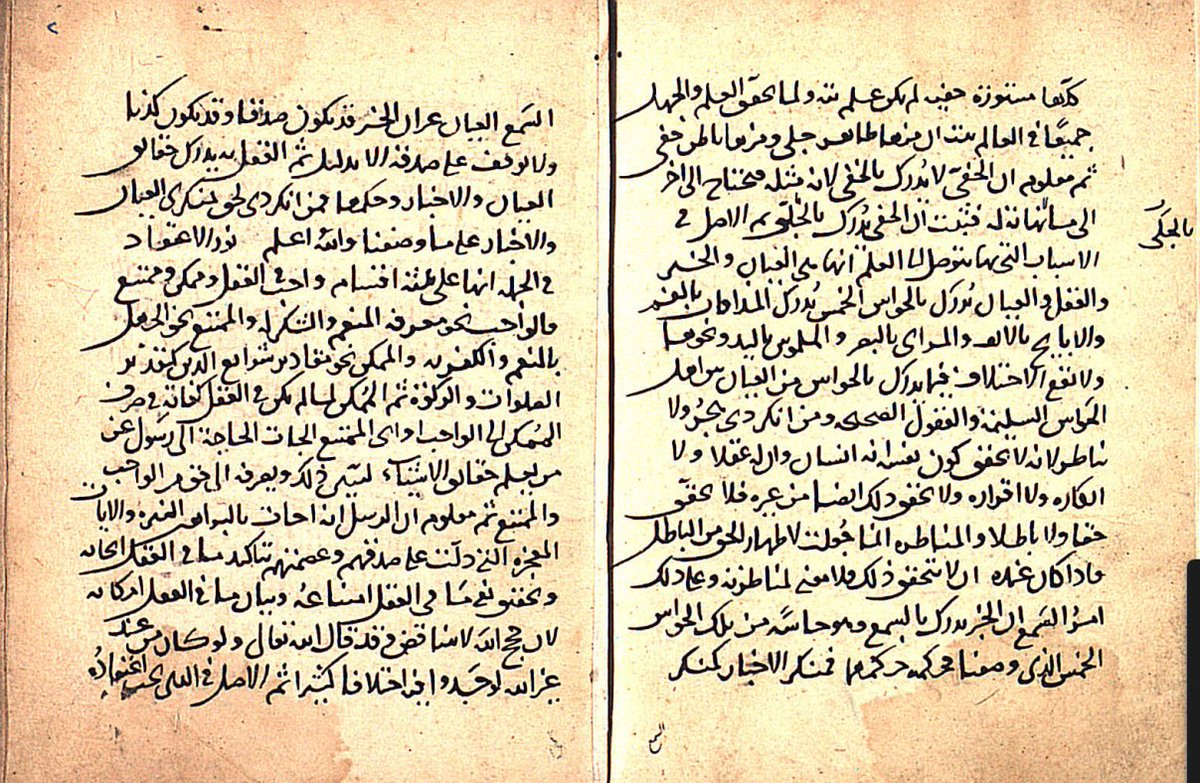 كلها مستورة خفية لم يكن علم بتة ولما تحقق العلم والجهل
جميعًا في العالم ثبت ان منها ظاهر جلي ومنها باطن خفي
ثم معلوم ان الخفي لا يُدرك بالخفي لانه مثله فيحتاج الى اخر
الى ما لا نهاية له فثبت ان الخفي يُدرك بالجلي ثم الاصل في
بالجلي
الاسباب التي بها يتوصل الى العلم انها هي العيان والخبر
والعقل والعيان يُدرك بالحواس الخمس يُدرك المذاقات بالفم
والاراييح بالانف والمراى بالبصر والملموس باليد ونحوها
ولا يقع الاختلاف فيما يدرك بالحواس من العيان بين اهل
الحواس السليمة والعقول الصحيحة ومن انكر ذي ولا
يناظر لانه لا يحقق كون نفسه انه انسان وان له عقلا ولا
انكاره ولا اقراره ولا يحقق ذلك ايضا من غيره فلا يحقق
حقا ولا باطلا والمناظرة انما جُعلت لاظهار الحق من الباطل
فاذا كان عنده ان لا تحقق ذلك فلا معنى لمناظرته وعلى ذلك
امرُ السمع ان الخبر يدرك بالسمع وهو حاسة من تلك الحواس
الخمس الذي وصفنا فحكمه حكمها فمنكر الاخبار كمنكر
السمع
٢
السمع العيان غير ان الخبر قد يكون صدقا وقد يكون كذبا
ولا يوقف على صدقه الا بدليل ثم العقل به يدرك حقائق
العيان والاخبار وحكمها فمن انكر ذي لحق بمنكري العيان
والاخبار على ما وصفنا والله اعلم الاعتقاد
في الجملة انها على ثلثة اقسام واجب في العقل وممكن وممتنع
فالواجب نحو معرفة المنعم والشكر له والممتنع نحو الجهل
بالمنعم والكفر به والممكن نحو مقادير شرايع الدين كتقدير
الصلوات والزكوة ثم الممكن لما لم يكن في العقل كفاية في صرف
الممكن الى الواجب او الى الممتنع الحاجة الى رسول عن
من يعلم حقائق الاشياء ليبين ذلك ويعرفه الحق من الواجب
والممتنع ثم معلوم ان الرسل اذا جاءت بالبراهين النيرة والايات
المعجزة التي دلت على صدقهم وعصمتهم تتاكد ما في العقل ايجابه
وتحقق نفي ما في العقل امتناعه وبيان ما في العقل امكانه
لان حجج الله لا تتناقض وقد قال الله تعالى ولو كان من عند
غير الله لوجدوا فيه اختلافا كثيرا ثم الاصل في اعتقاده